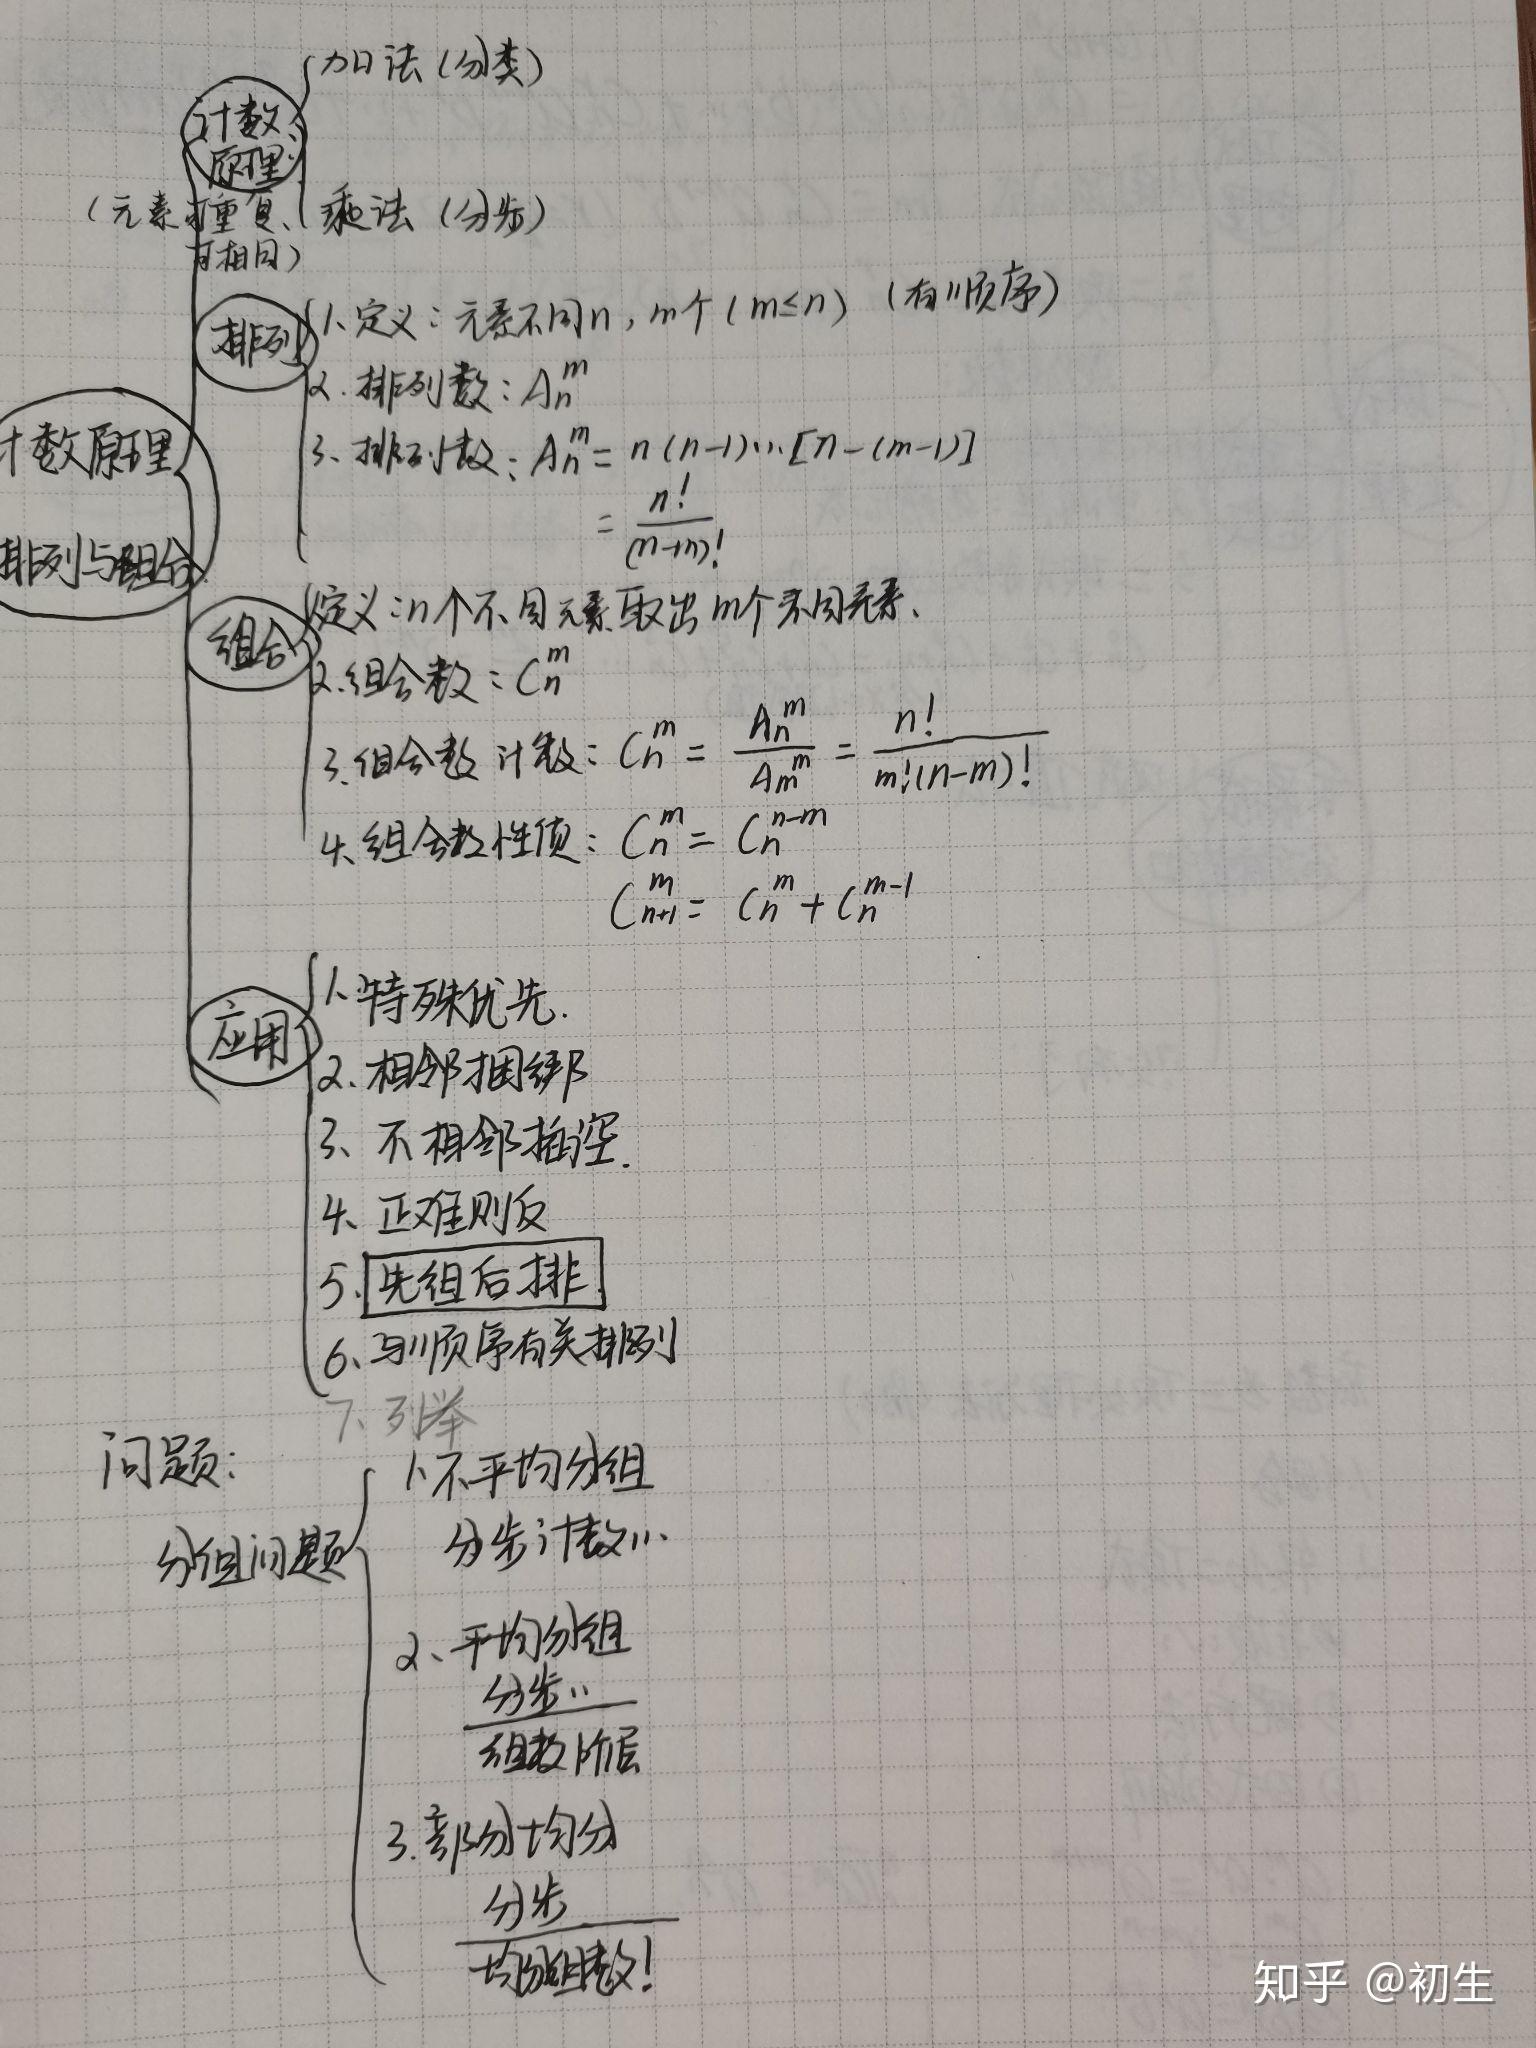 加法(分类)
计数
原理
(元素可重复、
可相同)
乘法(分步)
排列
1、定义:元素不同n,m个(m≤n)(有顺序)
2.排列数:Aₙᵐ
3、排列计数:Aₙᵐ=n(n-1)…[n-(m-1)]
=n!/(n-m)!
计数原理
排列与组合
组合
定义:n个不同元素取出m个不同元素、
2.组合数:Cₙᵐ
3.组合数计数:Cₙᵐ=Aₙᵐ/Aₘᵐ=n!/m!(n-m)!
4、组合数性质:Cₙᵐ=Cₙⁿ⁻ᵐ
Cₙ₊₁ᵐ=Cₙᵐ+Cₙᵐ⁻¹
应用
1、特殊优先.
2、相邻捆绑
3、不相邻插空.
4、正难则反
5.先组后排
6、与顺序有关排列
7、列举
问题:
分组问题
1、不平均分组
分步计数…
2、平均分组
分步…
组数阶层
3.部分均分
分步
均分组数!
知乎 @初生